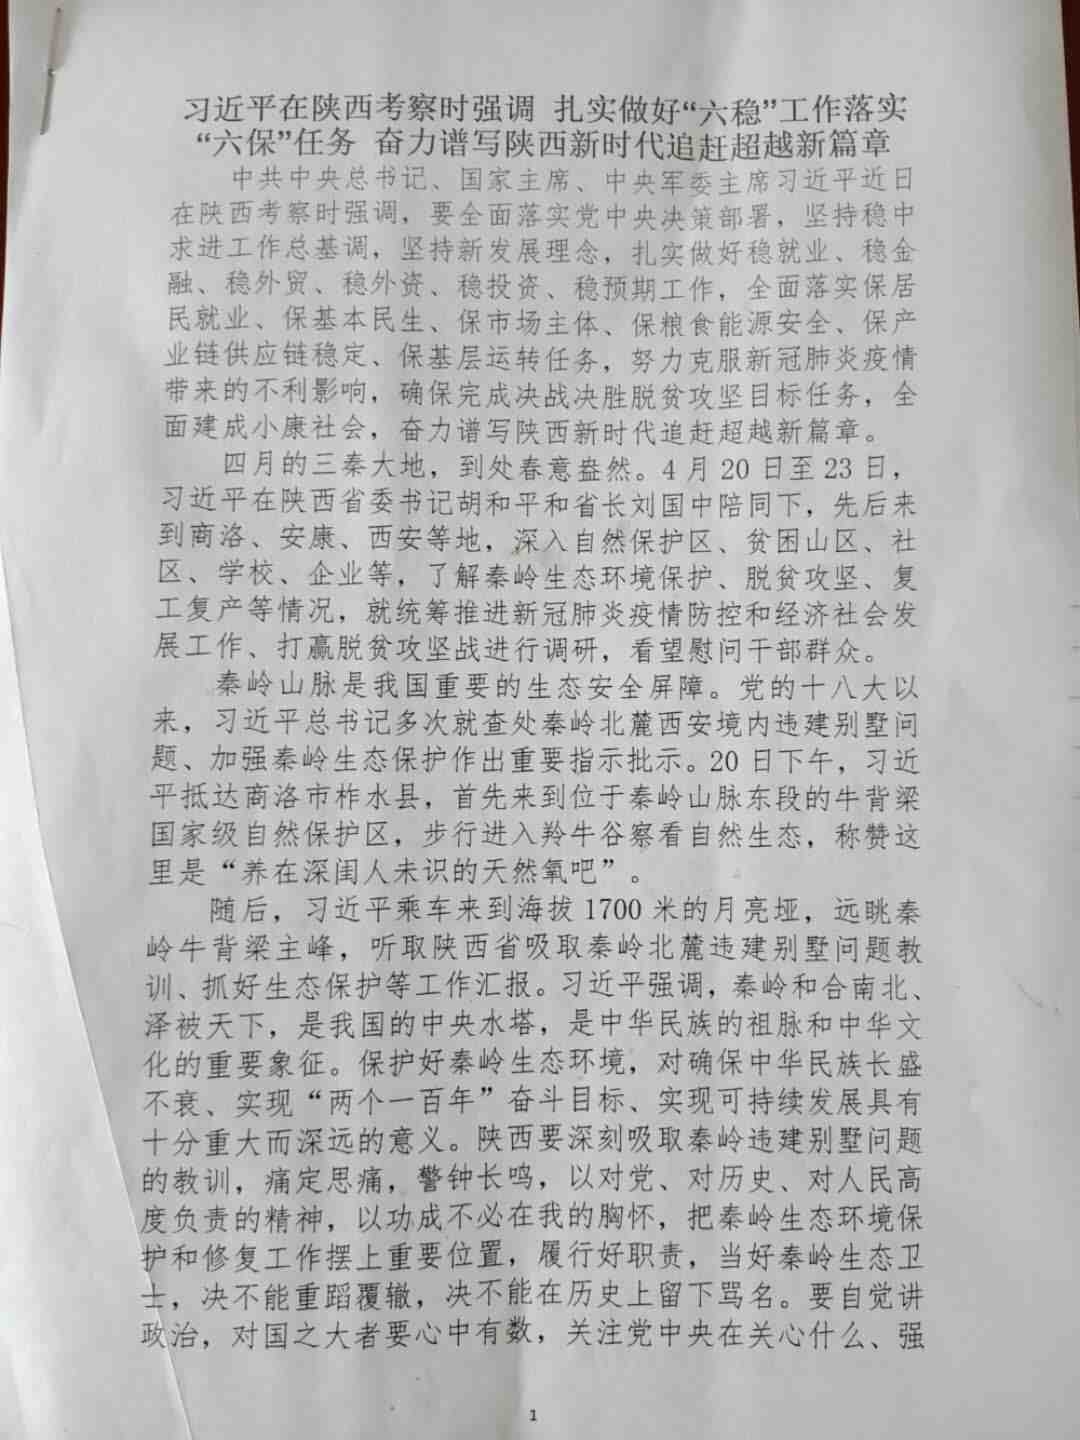 习近平在陕西考察时强调 扎实做好“六稳”工作落实
“六保”任务 奋力谱写陕西新时代追赶超越新篇章
中共中央总书记、国家主席、中央军委主席习近平近日
在陕西考察时强调，要全面落实党中央决策部署，坚持稳中
求进工作总基调，坚持新发展理念，扎实做好稳就业、稳金
融、稳外贸、稳外资、稳投资、稳预期工作，全面落实保居
民就业、保基本民生、保市场主体、保粮食能源安全、保产
业链供应链稳定、保基层运转任务，努力克服新冠肺炎疫情
带来的不利影响，确保完成决战决胜脱贫攻坚目标任务，全
面建成小康社会，奋力谱写陕西新时代追赶超越新篇章。
四月的三秦大地，到处春意盎然。4 月 20 日至 23 日，
习近平在陕西省委书记胡和平和省长刘国中陪同下，先后来
到商洛、安康、西安等地，深入自然保护区、贫困山区、社
区、学校、企业等，了解秦岭生态环境保护、脱贫攻坚、复
工复产等情况，就统筹推进新冠肺炎疫情防控和经济社会发
展工作、打赢脱贫攻坚战进行调研，看望慰问干部群众。
秦岭山脉是我国重要的生态安全屏障。党的十八大以
来，习近平总书记多次就查处秦岭北麓西安境内违建别墅问
题、加强秦岭生态保护作出重要指示批示。20 日下午，习近
平抵达商洛市柞水县，首先来到位于秦岭山脉东段的牛背梁
国家级自然保护区，步行进入羚牛谷察看自然生态，称赞这
里是“养在深闺人未识的天然氧吧”。
随后，习近平乘车来到海拔 1700 米的月亮垭，远眺秦
岭牛背梁主峰，听取陕西省吸取秦岭北麓违建别墅问题教
训、抓好生态保护等工作汇报。习近平强调，秦岭和合南北、
泽被天下，是我国的中央水塔，是中华民族的祖脉和中华文
化的重要象征。保护好秦岭生态环境，对确保中华民族长盛
不衰、实现“两个一百年”奋斗目标、实现可持续发展具有
十分重大而深远的意义。陕西要深刻吸取秦岭违建别墅问题
的教训，痛定思痛，警钟长鸣，以对党、对历史、对人民高
度负责的精神，以功成不必在我的胸怀，把秦岭生态环境保
护和修复工作摆上重要位置，履行好职责，当好秦岭生态卫
士，决不能重蹈覆辙，决不能在历史上留下骂名。要自觉讲
政治，对国之大者要心中有数，关注党中央在关心什么、强
1